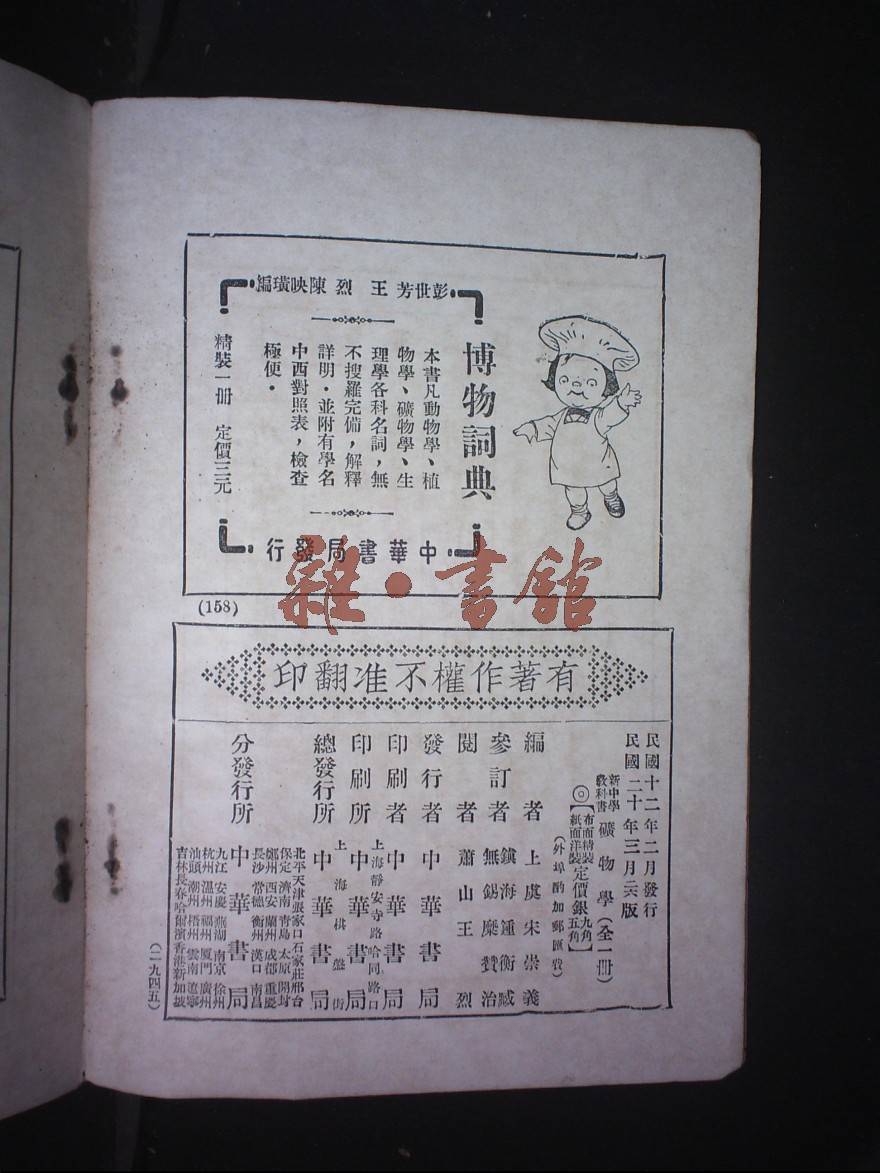 彭世芳 王烈 陳映璜編
博物詞典
本書凡動物學、植
物學、礦物學、生
理學各科名詞，無
不搜羅完備，解釋
詳明．並附有學名
中西對照表，檢查
極便．
精裝一册 定價三元
中華書局發行
雜·書館
(158)
有著作權不准翻印
民國十二年二月發行
民國二十年三月二六版
新中學教科書 礦物學（全一册）
◎【布面精裝 紙面洋裝】定價銀【九角 五角】
（外埠酌加郵匯費）
編者 上虞宋崇義
參訂者 鎮海鍾衡臧 無錫糜贊治
閱者 蕭山王烈
發行者 中華書局
印刷者 中華書局
印刷所 上海靜安寺路哈同路口 中華書局
總發行所 上海棋盤街 中華書局
分發行所 中華書局
北平 天津 張家口 石家莊 邢台
保定 濟南 青島 太原 開封
鄭州 西安 蘭州 成都 重慶
長沙 常德 衡州 漢口 南昌
九江 安慶 蕪湖 南京 徐州
杭州 溫州 福州 厦門 廣州
汕頭 潮州 梧州 雲南 遼寧
吉林 長春 哈爾濱 香港 新加坡
（二九四五）